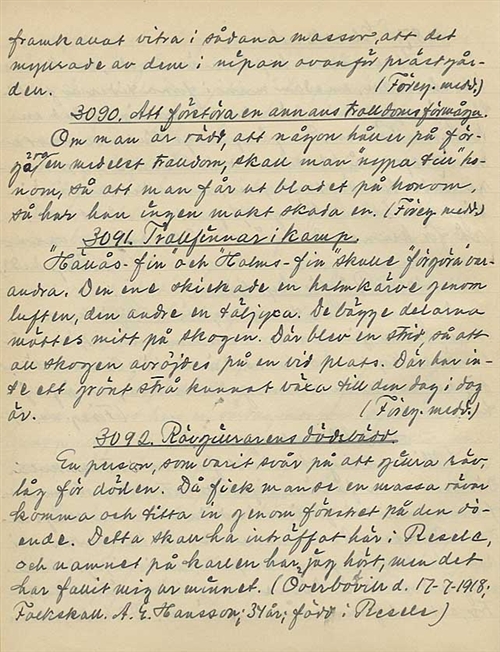 framkallat vitra i sådana massor, att det
myllrade av dem i nipan ovanför prästgår-
den. (Föreg. medd.)
3090. Att förstöra en annans trolldomsförmåga.
Om man är rädd, att någon håller på för-
göra en medelst trolldom, skall man "nypa till" ho-
nom, så att man får ut blodet på honom,
så har han ingen makt skada en. (Föreg. medd.)
3091. Trollfinnar i kamp.
"Hällås-fin" och "Holms-fin" skulle "förgöra" var-
andra. Den ene skickade en halmkärve genom
luften, den andre en täljyxa. De bägge delarna
möttes mitt på skogen. Där blev en strid, så att
all skogen avröjdes på en vid plats. Där har in-
te ett grönt strå kunnat växa till den dag i dag
är. (Föreg. medd.)
3092. Rävgillrarens dödsbädd.
En person, som varit svår på att gillra räv,
låg för döden. Då fick man se en massa rävar
komma och titta in genom fönstret på den dö-
ende. Detta skall ha inträffat här i Resele,
och namnet på karlen har jag hört, men det
har fallit mig ur minnet. (Överboviln d. 17-7-1918;
Folkskoll. A. E. Hansson; 34 år; född i Resele)